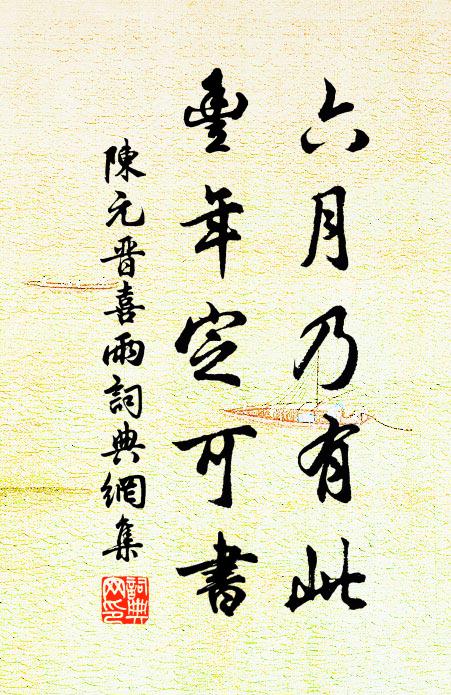 六月乃有此
豐年定可書
陳元晋喜雨詞典網集
詞典網印